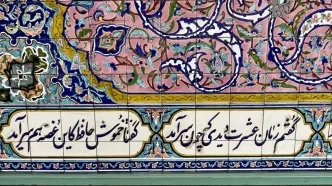 گفتم زمان عشرت دیدی که چون سر آمد
گفتا خموش حافظ کاین غصه هم سر آید